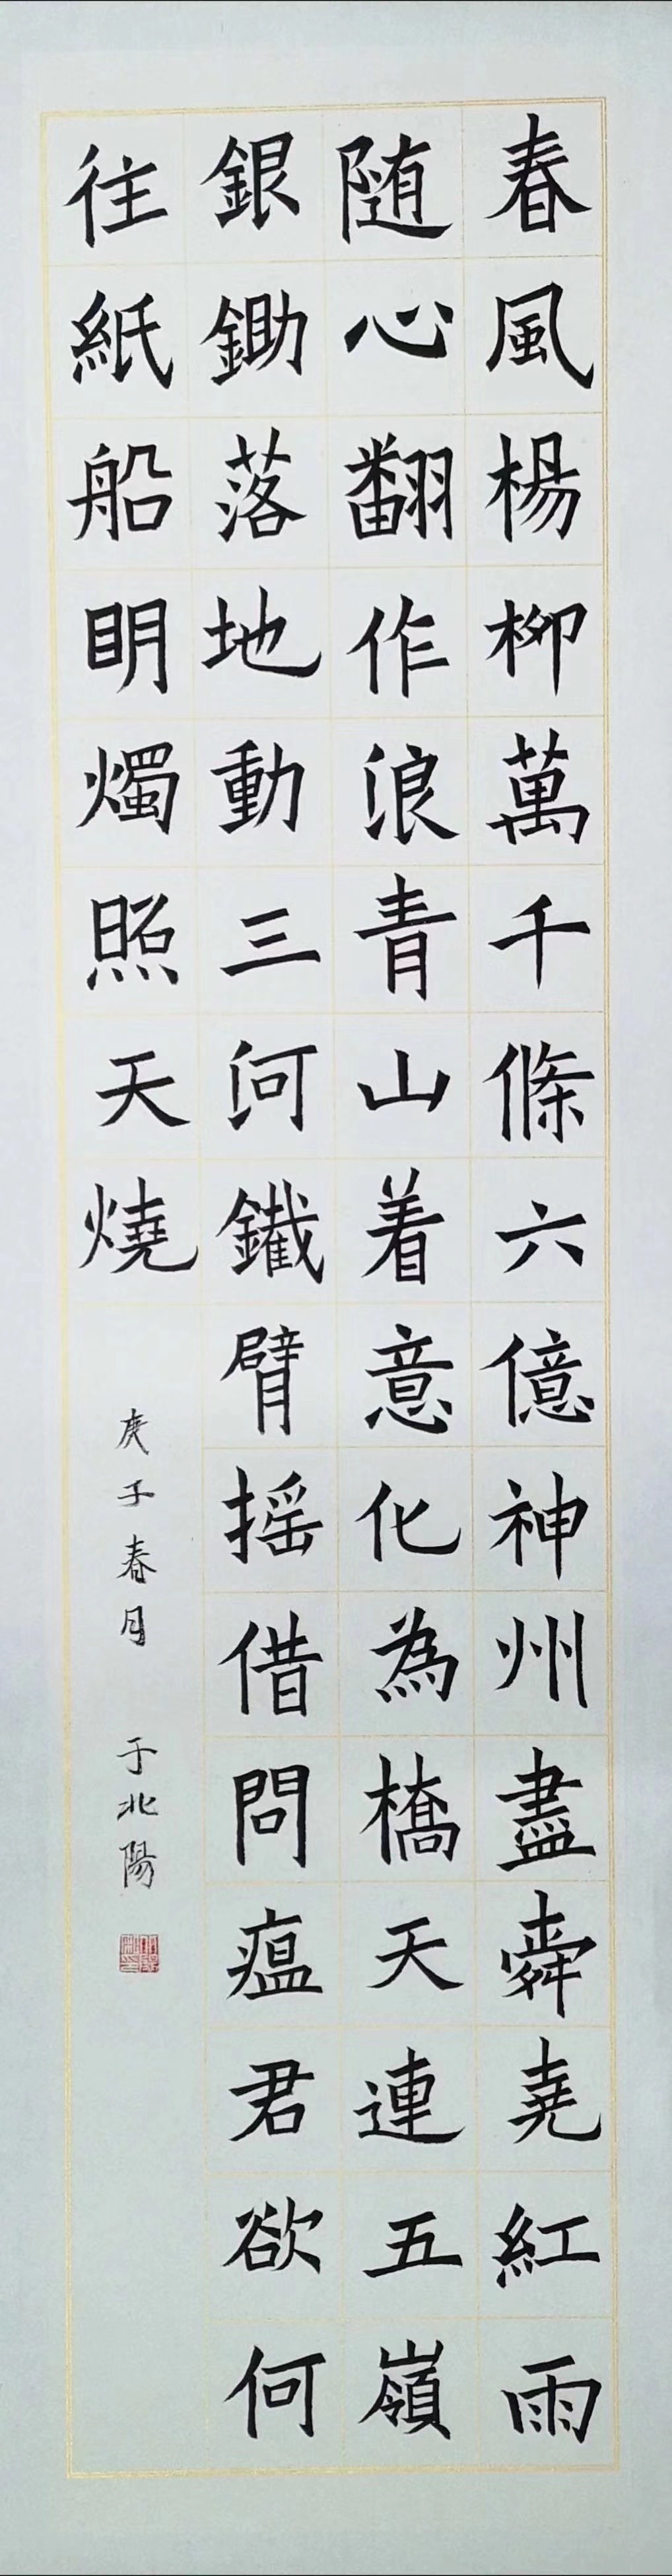 春風楊柳萬千條六億神州盡舜堯紅雨
随心翻作浪青山着意化為橋天連五嶺
銀鋤落地動三河鐵臂摇借問瘟君欲何
往紙船明燭照天燒
庚子春月 于北陽